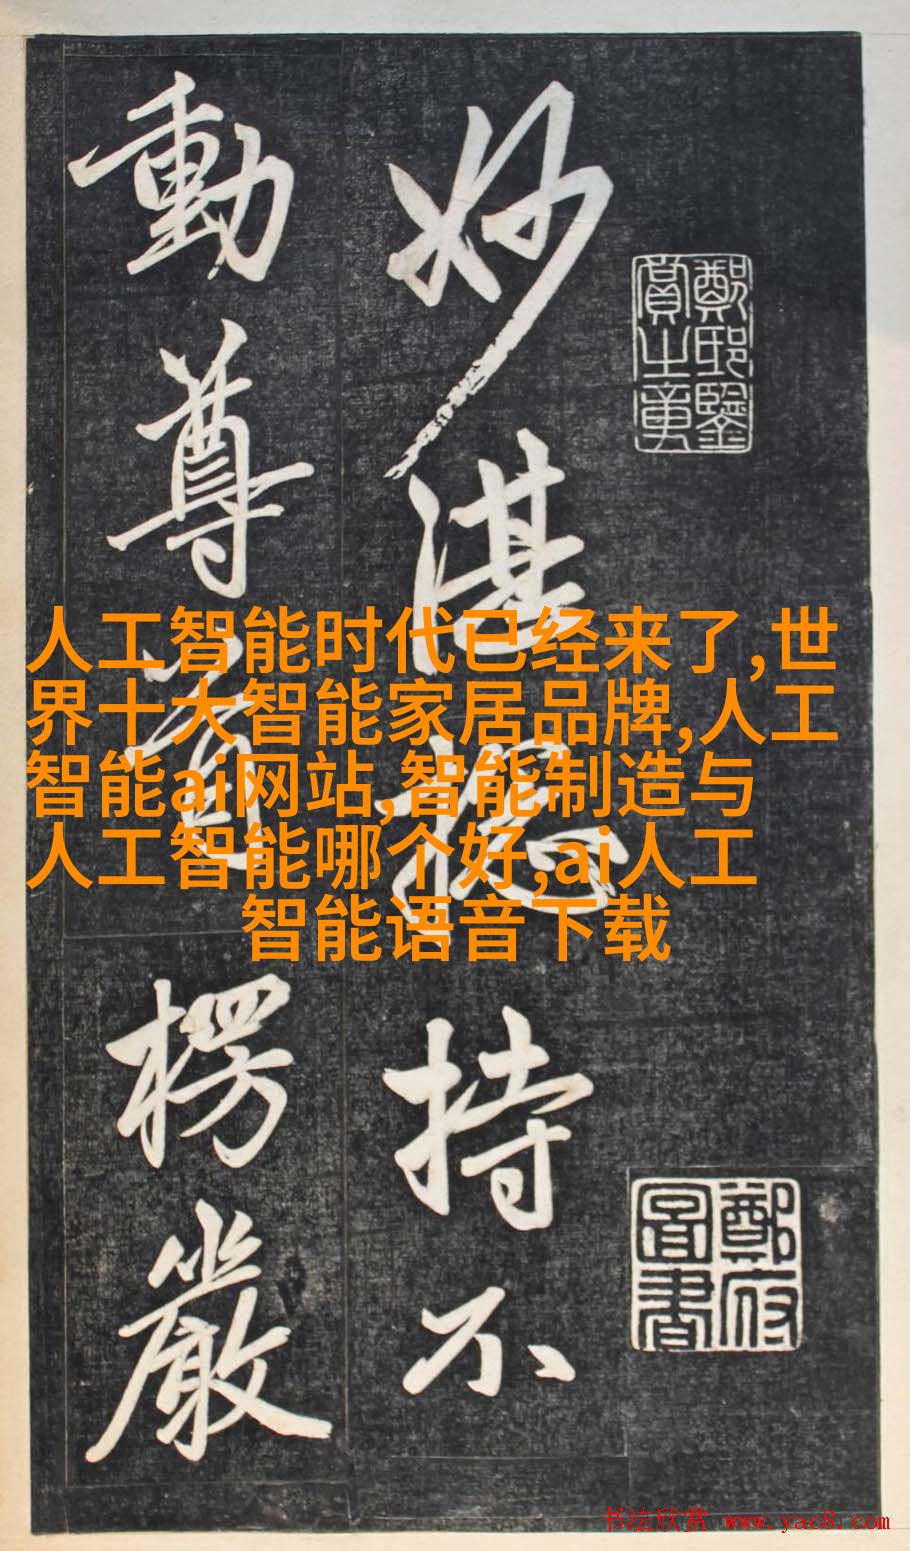 鄭邸鑒
賞之章
鄭府
圖書
妙湛揔持不
動尊首楞嚴
人工智能时代已经来了,世
界十大智能家居品牌,人工
智能ai网站,智能制造与
人工智能哪个好,ai人工
智能语音下载
书法欣赏 www.yac8.com